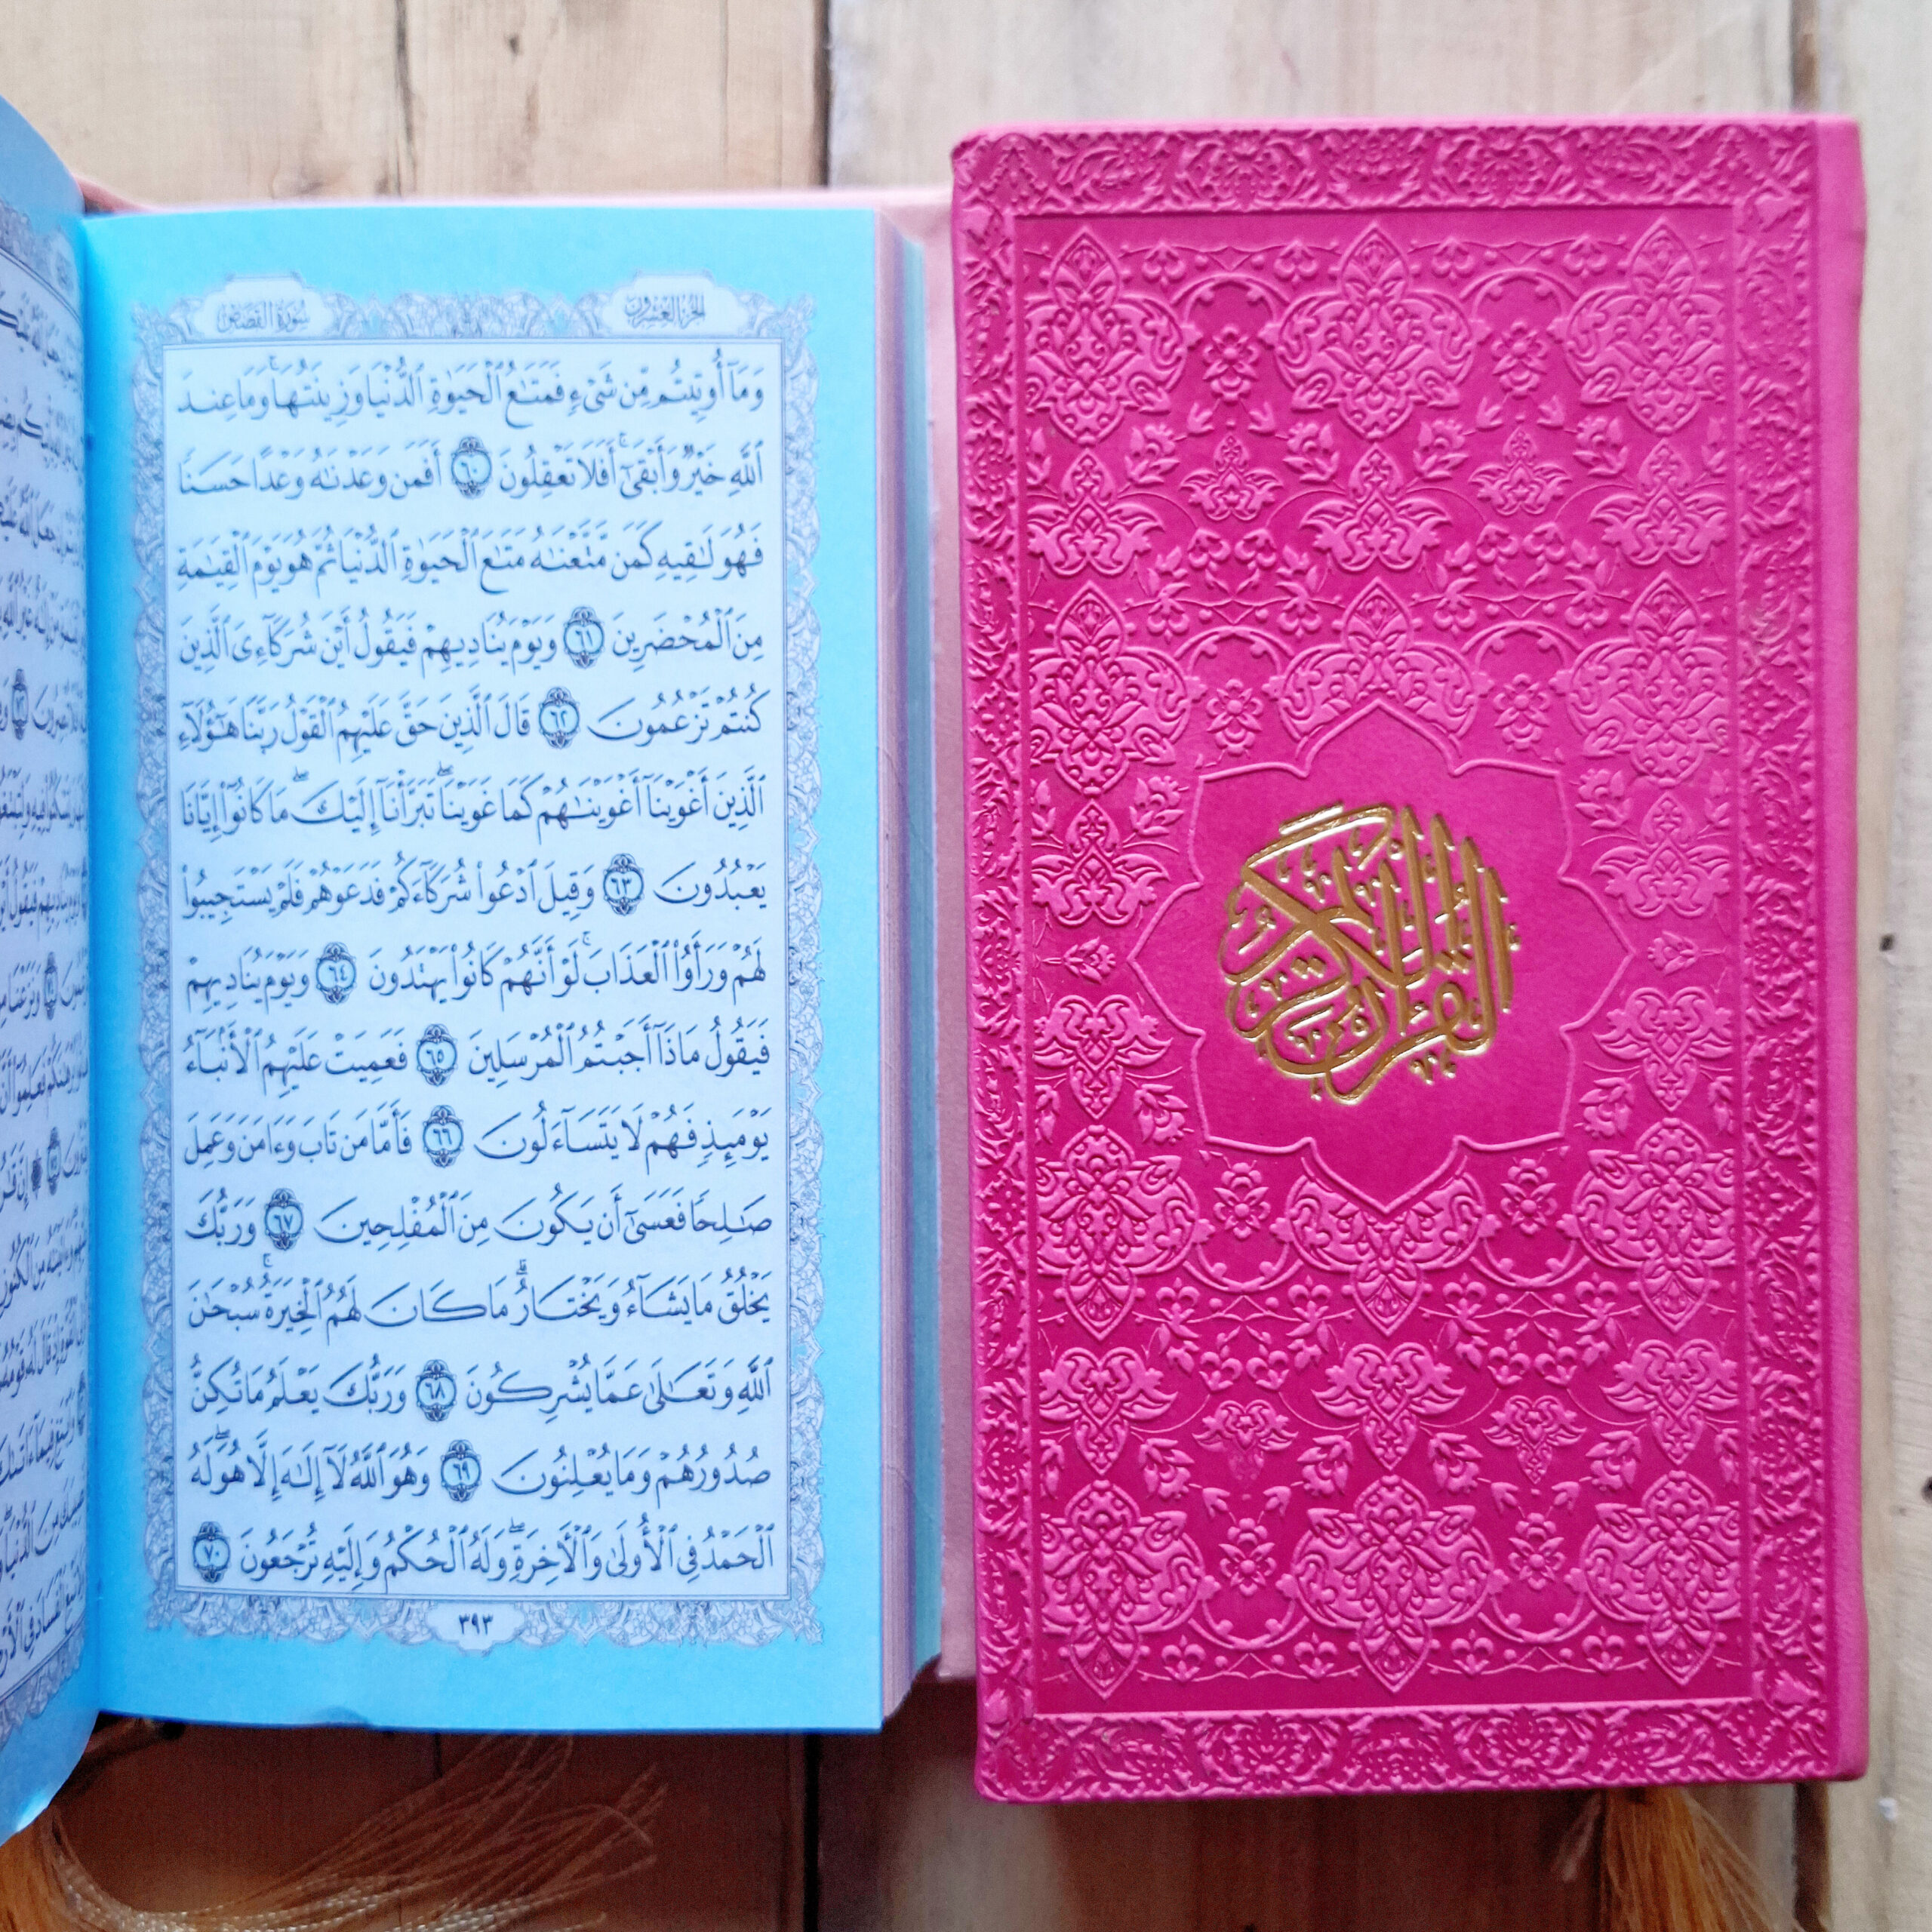 سُورَةُ القَصَصِ
الجُزءُ العِشْرُونَ
وَمَآ أُوتِيتُم مِّن شَىْءٍ فَمَتَٰعُ ٱلْحَيَوٰةِ ٱلدُّنْيَا وَزِينَتُهَا ۚ وَمَا عِندَ
ٱللَّهِ خَيْرٌ وَأَبْقَىٰٓ ۚ أَفَلَا تَعْقِلُونَ ٦٠ أَفَمَن وَعَدْنَٰهُ وَعْدًا حَسَنًا
فَهُوَ لَٰقِيهِ كَمَن مَّتَّعْنَٰهُ مَتَٰعَ ٱلْحَيَوٰةِ ٱلدُّنْيَا ثُمَّ هُوَ يَوْمَ ٱلْقِيَٰمَةِ
مِنَ ٱلْمُحْضَرِينَ ٦١ وَيَوْمَ يُنَادِيهِمْ فَيَقُولُ أَيْنَ شُرَكَآءِىَ ٱلَّذِينَ
كُنتُمْ تَزْعُمُونَ ٦٢ قَالَ ٱلَّذِينَ حَقَّ عَلَيْهِمُ ٱلْقَوْلُ رَبَّنَا هَٰٓؤُلَآءِ
ٱلَّذِينَ أَغْوَيْنَآ أَغْوَيْنَٰهُمْ كَمَا غَوَيْنَا ۖ تَبَرَّأْنَآ إِلَيْكَ ۖ مَا كَانُوٓا۟ إِيَّانَا
يَعْبُدُونَ ٦٣ وَقِيلَ ٱدْعُوا۟ شُرَكَآءَكُمْ فَدَعَوْهُمْ فَلَمْ يَسْتَجِيبُوا۟
لَهُمْ وَرَأَوُا۟ ٱلْعَذَابَ ۚ لَوْ أَنَّهُمْ كَانُوا۟ يَهْتَدُونَ ٦٤ وَيَوْمَ يُنَادِيهِمْ
فَيَقُولُ مَاذَآ أَجَبْتُمُ ٱلْمُرْسَلِينَ ٦٥ فَعَمِيَتْ عَلَيْهِمُ ٱلْأَنۢبَآءُ
يَوْمَئِذٍ فَهُمْ لَا يَتَسَآءَلُونَ ٦٦ فَأَمَّا مَن تَابَ وَءَامَنَ وَعَمِلَ
صَٰلِحًا فَعَسَىٰٓ أَن يَكُونَ مِنَ ٱلْمُفْلِحِينَ ٦٧ وَرَبُّكَ
يَخْلُقُ مَا يَشَآءُ وَيَخْتَارُ ۗ مَا كَانَ لَهُمُ ٱلْخِيَرَةُ ۚ سُبْحَٰنَ
ٱللَّهِ وَتَعَٰلَىٰ عَمَّا يُشْرِكُونَ ٦٨ وَرَبُّكَ يَعْلَمُ مَا تُكِنُّ
صُدُورُهُمْ وَمَا يُعْلِنُونَ ٦٩ وَهُوَ ٱللَّهُ لَآ إِلَٰهَ إِلَّا هُوَ ۖ لَهُ
ٱلْحَمْدُ فِى ٱلْأُولَىٰ وَٱلْءَاخِرَةِ ۖ وَلَهُ ٱلْحُكْمُ وَإِلَيْهِ تُرْجَعُونَ ٧٠
٣٩٣
القرآن الكريم